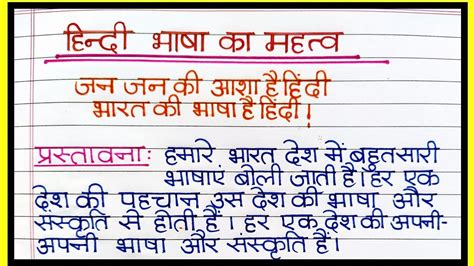 हिन्दी भाषा का महत्व
जन जन की आशा है हिंदी
भारत की भाषा है हिंदी!
प्रस्तावना: हमारे भारत देश में बहुत सारी
भाषाएं बोली जाती है। हर एक
देश की पहचान उस देश की भाषा और
संस्कृति से होती हैं। हर एक देश की अपनी-
अपनी भाषा और संस्कृति हैं।